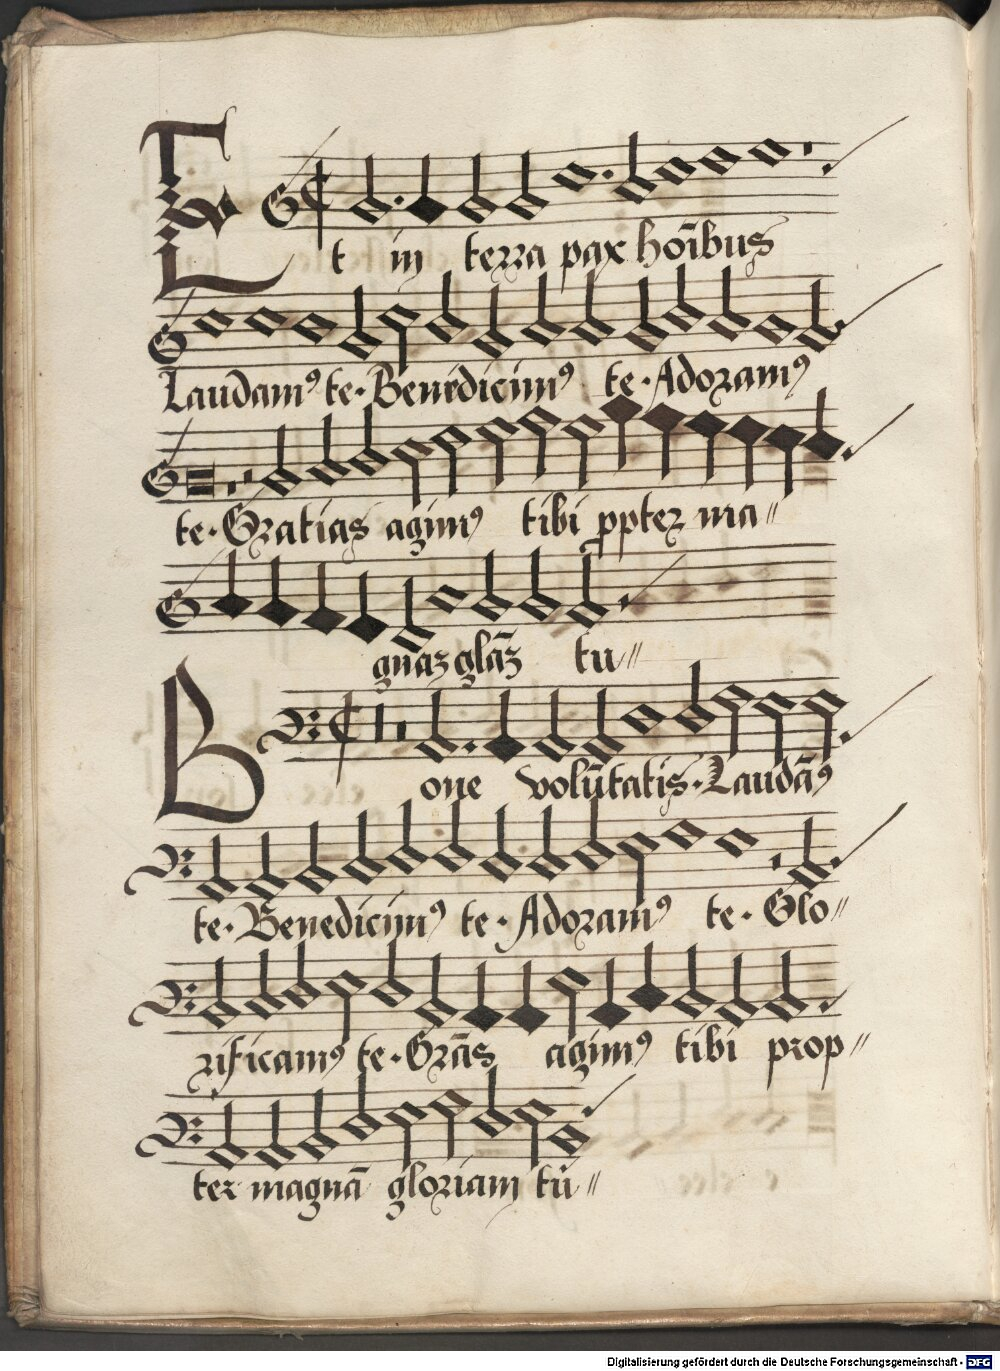 Et in terra pax hoĩbus
Laudamꝰ te. Benedicimꝰ te. Adoramꝰ
te. Gratias agimꝰ tibi ppter ma//
gnaz glãz tu//
Bone volũtatis. Laudãꝰ
te. Benedicimꝰ te. Adoramꝰ te. Glo//
rificamꝰ te. Grãs agimꝰ tibi prop//
ter magnã gloriam tu//
Digitalisierung gefördert durch die Deutsche Forschungsgemeinschaft - DFG